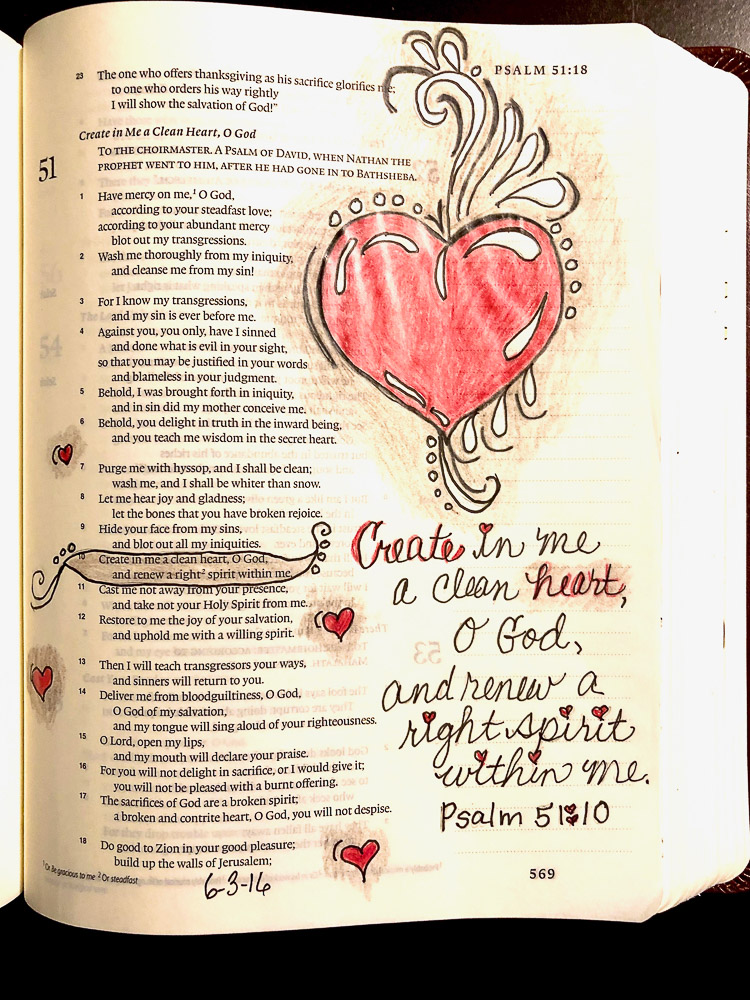 PSALM 51:18
23 The one who offers thanksgiving as his sacrifice glorifies me;
to one who orders his way rightly
I will show the salvation of God!”
Create in Me a Clean Heart, O God
51 TO THE CHOIRMASTER. A PSALM OF DAVID, WHEN NATHAN THE
PROPHET WENT TO HIM, AFTER HE HAD GONE IN TO BATHSHEBA.
1 Have mercy on me,¹ O God,
according to your steadfast love;
according to your abundant mercy
blot out my transgressions.
2 Wash me thoroughly from my iniquity,
and cleanse me from my sin!
3 For I know my transgressions,
and my sin is ever before me.
4 Against you, you only, have I sinned
and done what is evil in your sight,
so that you may be justified in your words
and blameless in your judgment.
5 Behold, I was brought forth in iniquity,
and in sin did my mother conceive me.
6 Behold, you delight in truth in the inward being,
and you teach me wisdom in the secret heart.
7 Purge me with hyssop, and I shall be clean;
wash me, and I shall be whiter than snow.
8 Let me hear joy and gladness;
let the bones that you have broken rejoice.
9 Hide your face from my sins,
and blot out all my iniquities.
10 Create in me a clean heart, O God,
and renew a right² spirit within me.
11 Cast me not away from your presence,
and take not your Holy Spirit from me.
12 Restore to me the joy of your salvation,
and uphold me with a willing spirit.
13 Then I will teach transgressors your ways,
and sinners will return to you.
14 Deliver me from bloodguiltiness, O God,
O God of my salvation,
and my tongue will sing aloud of your righteousness.
15 O Lord, open my lips,
and my mouth will declare your praise.
16 For you will not delight in sacrifice, or I would give it;
you will not be pleased with a burnt offering.
17 The sacrifices of God are a broken spirit;
a broken and contrite heart, O God, you will not despise.
18 Do good to Zion in your good pleasure;
build up the walls of Jerusalem;
¹ Or Be gracious to me ² Or steadfast
6-3-16
Create in me
a clean heart,
O God,
and renew a
right spirit
within me.
Psalm 51:10
569